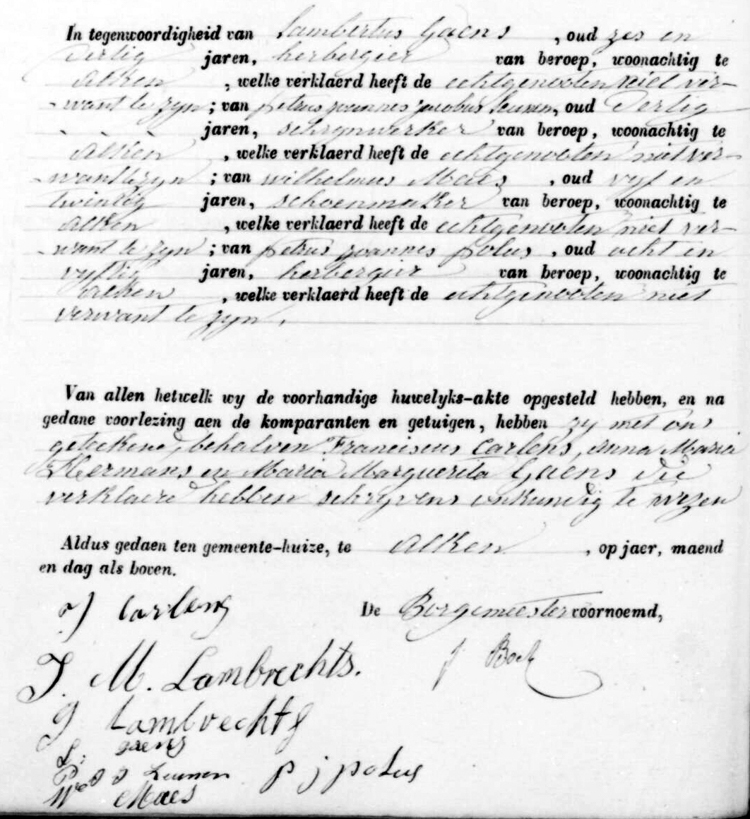 In tegenwoordigheid van Lambertus Gaens , oud zes en
dertig jaren, herbergier van beroep, woonachtig te
Alken , welke verklaerd heeft de echtgenooten niet ver-
want te zyn ; van petrus joannes jacobus Leunen, oud dertig
jaren, schrynwerker van beroep, woonachtig te
Alken , welke verklaerd heeft de echtgenooten niet ver-
want te zyn ; van wilhelmus Maes , oud vyf en
twintig jaren, schoenmaker van beroep, woonachtig te
Alken , welke verklaerd heeft de echtgenooten niet ver-
want te zyn ; van petrus joannes polus , oud acht en
vyftig jaren, herbergier van beroep, woonachtig te
Alken , welke verklaerd heeft de echtgenooten niet
verwant te zyn.
Van allen hetwelk wy de voorhandige huwelyks-akte opgesteld hebben, en na
gedane voorlezing aen de komparanten en getuigen, hebben zy met ons
geteekend, behalven Franciscus Carlens, anna Maria
Hermans en Maria Marguerita Gaens die
verklaerd hebben schryvens onkundig te wezen
Aldus gedaen ten gemeente-huize, te Alken , op jaer, maend
en dag als boven.
De Borgemeester voornoemd,
Carlens
J. M. Lambrechts.
J Bock
g Lambrechts
L: gaens
P J J Leunen p j polus
Wm Maes